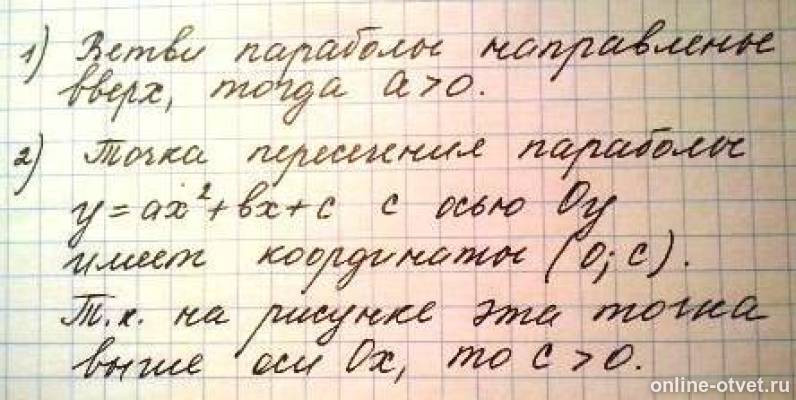 1) Ветви параболы направлены
вверх, тогда a>0.
2) Точка пересечения параболы
y=ax²+вx+c с осью Oy
имеет координаты (0; c).
Т.к. на рисунке эта точка
выше оси Ox, то c>0.
online-otvet.ru